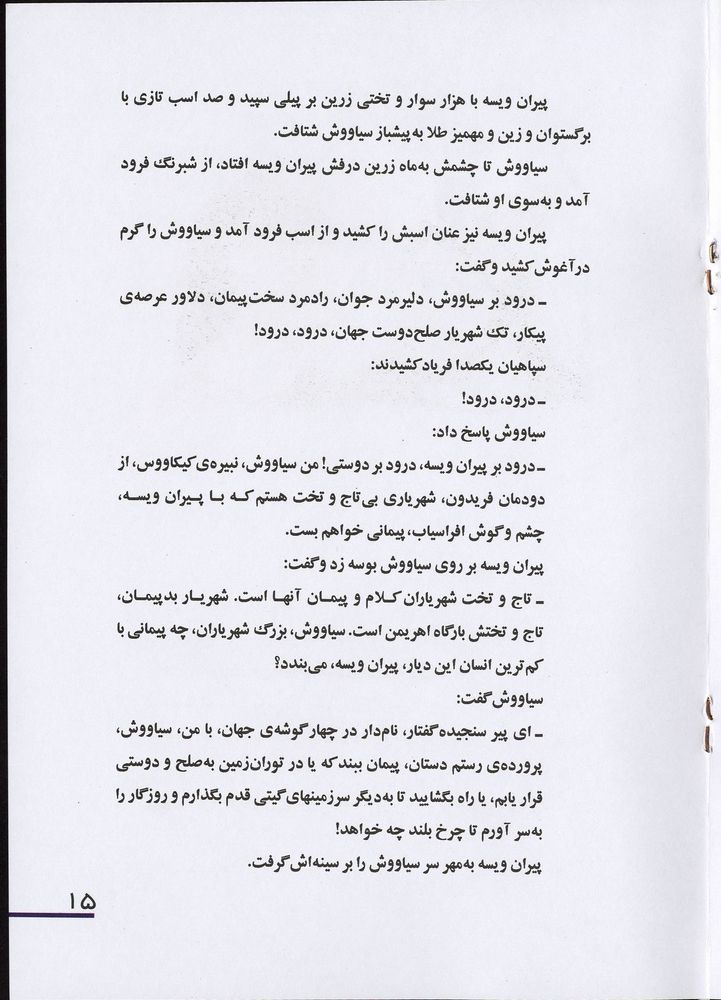 پیران ویسه با هزار سوار و تختی زرین بر پیلی سپید و صد اسب تازی با
برگستوان و زین و مهمیز طلا به پیشباز سیاووش شتافت.
سیاووش تا چشمش به‌ماه زرین درفش پیران ویسه افتاد، از شبرنگ فرود
آمد و به‌سوی او شتافت.
پیران ویسه نیز عنان اسبش را کشید و از اسب فرود آمد و سیاووش را گرم
در آغوش کشید و گفت:
ـ درود بر سیاووش، دلیرمرد جوان، رادمرد سخت‌پیمان، دلاور عرصه‌ی
پیکار، تک شهریار صلح‌دوست جهان، درود، درود!
سپاهیان یکصدا فریاد کشیدند:
ـ درود، درود!
سیاووش پاسخ داد:
ـ درود بر پیران ویسه، درود بر دوستی! من سیاووش، نبیره‌ی کیکاووس، از
دودمان فریدون، شهریاری بی‌تاج و تخت هستم که با پیران ویسه،
چشم و گوش افراسیاب، پیمانی خواهم بست.
پیران ویسه بر روی سیاووش بوسه زد و گفت:
ـ تاج و تخت شهریاران کلام و پیمان آنها است. شهریار بدپیمان،
تاج و تختش بارگاه اهریمن است. سیاووش، بزرگ شهریاران، چه پیمانی با
کم‌ترین انسان این دیار، پیران ویسه، می‌بندد؟
سیاووش گفت:
ـ ای پیر سنجیده گفتار، نام‌دار در چهار گوشه‌ی جهان، با من، سیاووش،
پرورده‌ی رستم دستان، پیمان ببند که یا در توران‌زمین به‌صلح و دوستی
قرار یابم، یا راه بگشایید تا به‌دیگر سرزمینهای گیتی قدم بگذارم و روزگار را
به‌سر آورم تا چرخ بلند چه خواهد!
پیران ویسه به‌مهر سر سیاووش را بر سینه‌اش گرفت.
۱۵